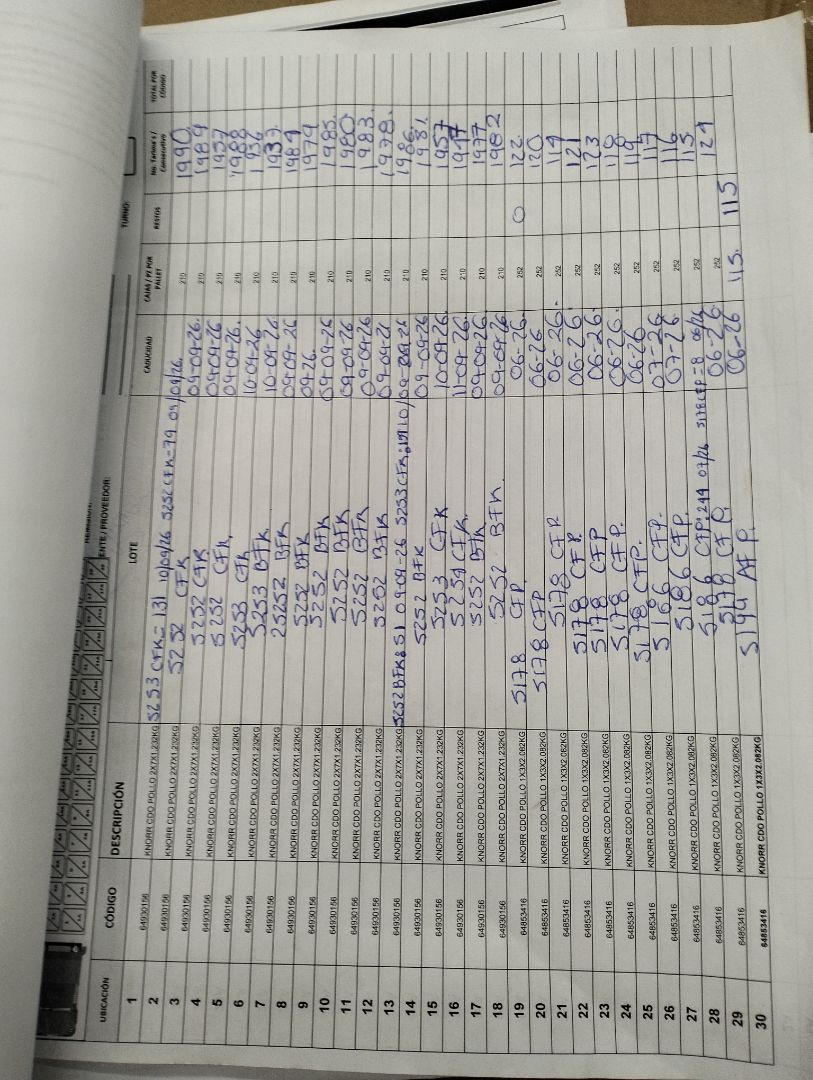 TURNO:
ENTE / PROVEEDOR:
UBICACIÓN CÓDIGO DESCRIPCIÓN LOTE CADUCIDAD CAJAS / PZ POR PALLET RESTOS No. Tarima's / Consecutivo TOTAL POR CÓDIGO
1
2 64930156 KNORR CDO POLLO 2X7X1.232KG 5253 CFK=131 10/04/26 5252 CFK=79 09/04/26. 210 1990
3 64930156 KNORR CDO POLLO 2X7X1.232KG 5252 CFK 09-04-26. 210 1989
4 64930156 KNORR CDO POLLO 2X7X1.232KG 5252 CFK 09-04-26 210 1937
5 64930156 KNORR CDO POLLO 2X7X1.232KG 5252 CFK 09-04-26. 210 1988
6 64930156 KNORR CDO POLLO 2X7X1.232KG 5253 CFK 10-04-26 210
7 64930156 KNORR CDO POLLO 2X7X1.232KG 5253 BFK 10-04-26 210
8 64930156 KNORR CDO POLLO 2X7X1.232KG 25252 BFK 09-04-26 210
9 64930156 KNORR CDO POLLO 2X7X1.232KG 5252 BFK 04-26. 210 1979
10 64930156 KNORR CDO POLLO 2X7X1.232KG 5252 BFK 09-04-26 210 1985.
11 64930156 KNORR CDO POLLO 2X7X1.232KG 5252 BFK 09-04-26 210 1980
12 64930156 KNORR CDO POLLO 2X7X1.232KG 5252 BFK 09-04-26 210 1983.
13 64930156 KNORR CDO POLLO 2X7X1.232KG 5252 BFK 210 1978.
14 64930156 KNORR CDO POLLO 2X7X1.232KG 5252 BFK 51 09-04-26 5253 CFK 210 1986.
15 64930156 KNORR CDO POLLO 2X7X1.232KG 5252 BFK 09-04-26 210 1981.
16 64930156 KNORR CDO POLLO 2X7X1.232KG 5253 CFK 10-04-26 210 1957
17 64930156 KNORR CDO POLLO 2X7X1.232KG CFK. 11-04-26. 210
18 64930156 KNORR CDO POLLO 2X7X1.232KG 5252 BFK 09-04-26 210 1977
19 64930156 KNORR CDO POLLO 2X7X1.232KG 5252 BFK. 09-04-26 210 1982
20 64853416 KNORR CDO POLLO 1X3X2.082KG 5178 CFP 06-26. 252 0 122.
21 64853416 KNORR CDO POLLO 1X3X2.082KG 5178 CFP 06-26 252 120
22 64853416 KNORR CDO POLLO 1X3X2.082KG 5178 CFP 06-26. 252 119
23 64853416 KNORR CDO POLLO 1X3X2.082KG 5178 CFP. 06-26. 252 121
24 64853416 KNORR CDO POLLO 1X3X2.082KG 5178 CFP 06-26. 252 123
25 64853416 KNORR CDO POLLO 1X3X2.082KG 5178 CFP. 06-26. 252 118
26 64853416 KNORR CDO POLLO 1X3X2.082KG 5178 CFP. 06-26 252
27 64853416 KNORR CDO POLLO 1X3X2.082KG 5186 CFP. 07-26 252 117
28 64853416 KNORR CDO POLLO 1X3X2.082KG 5186 CFP. 07-26 252 116
29 64853416 KNORR CDO POLLO 1X3X2.082KG 5186 CFP:244 07/26 5178 CFP=8 06/26 252 115
30 64853416 KNORR CDO POLLO 1X3X2.082KG 5178 CFP. 06-26 252 124
5194 AFP. 06-26 115. 115